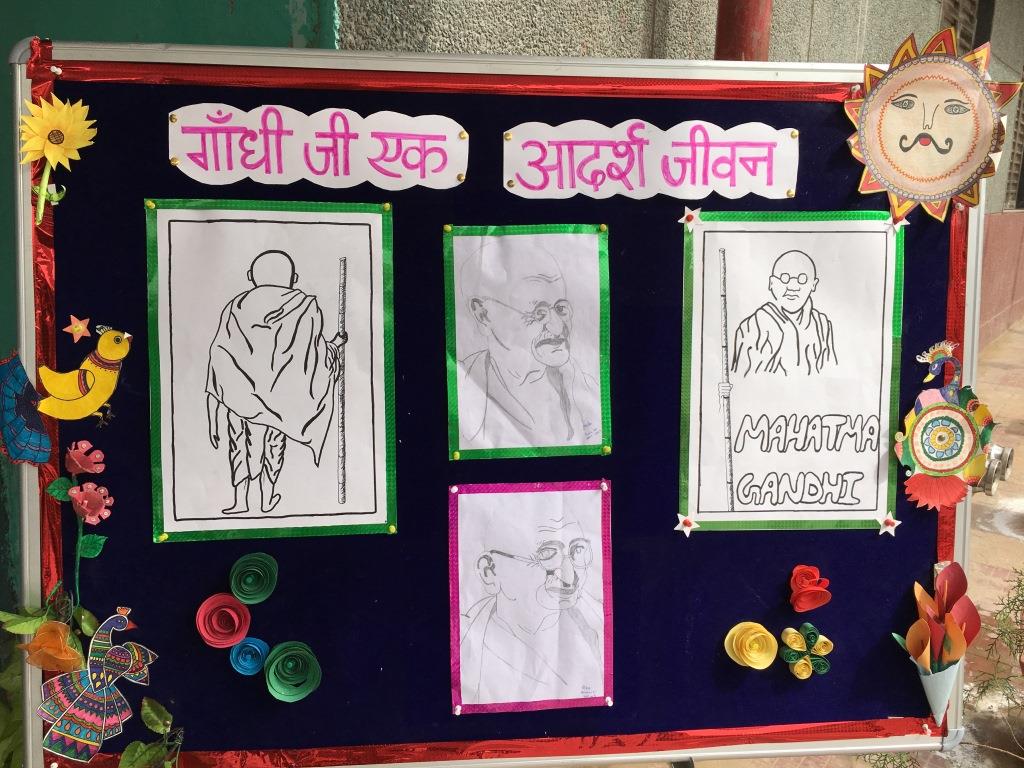 गाँधी जी एक आदर्श जीवन
MAHATMA
GANDHI